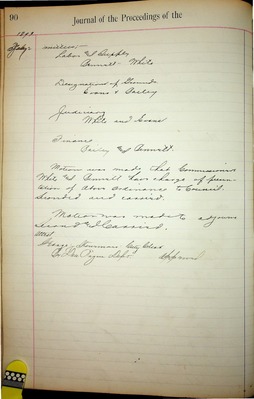 90
Journal of the Proceedings of the
1892
mittees:—
Labor and Supplies
Bennett - White
Designation of Grounds
Evans & Bailey
Judiciary
White and Evans
Finance
Bailey and Bennett.
Motion was made that Commissioners
White and Bennett have charge of presen-
tation of above ordinance to Council.
Seconded and carried.
Motion was made to adjourn
Second and Carried.
George City Clerk
Approved